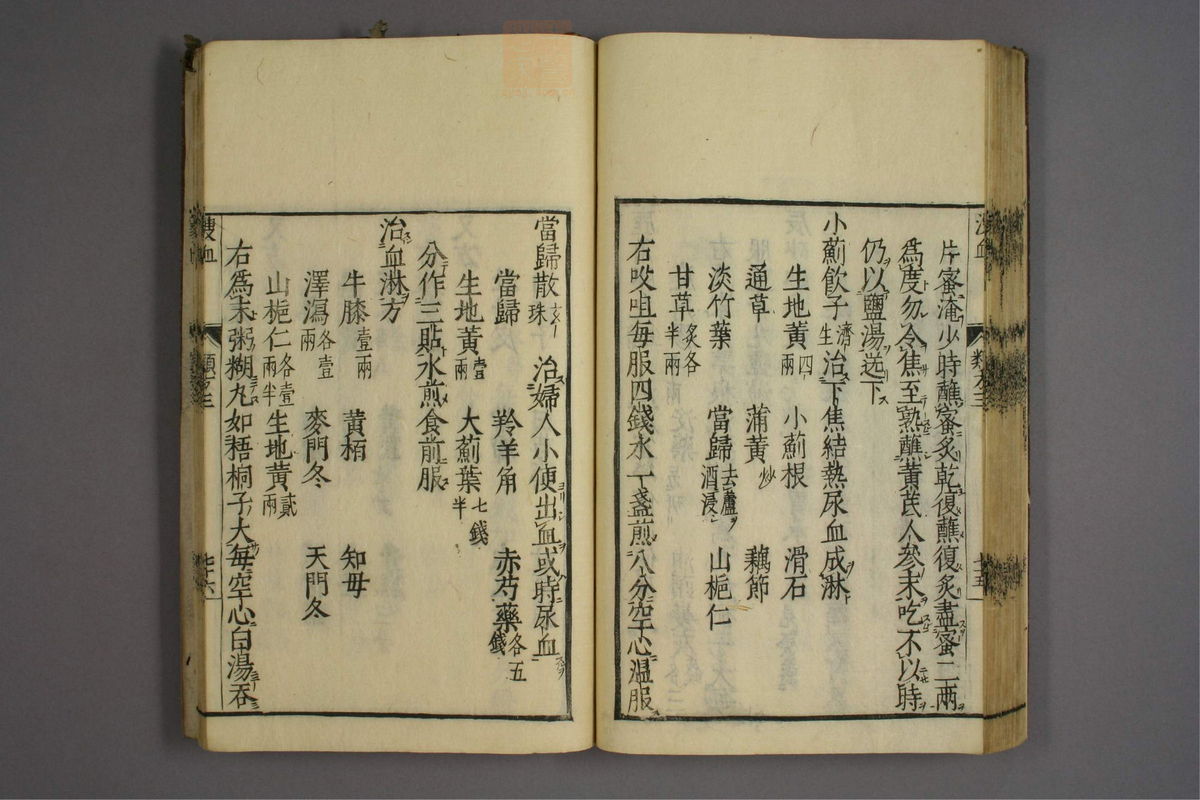 片蜜淹少時蘸蜜炙乾復蘸復炙盡蜜二兩
為度勿令焦至熟蘸黃茋人參末吃不以時
仍以鹽湯送下
小薊飲子濟生治下焦結熱尿血成淋
生地黃四兩 小薊根 滑石
通草 蒲黃炒 藕節
淡竹葉 當歸去蘆酒浸 山梔仁
甘草炙各半兩
右㕮咀每服四錢水一盞煎八分空心溫服
當歸散 治婦人小便出血或時尿血
當歸 羚羊角 赤芍藥各五錢
生地黃壹兩 大薊葉七錢半
分作三貼水煎食前服
治血淋方
牛膝壹兩 黃栢 知母
澤瀉各壹兩 麥門冬 天門冬
山梔仁各壹兩半 生地黃貳兩
右為末粥糊丸如梧桐子大每空心白湯吞